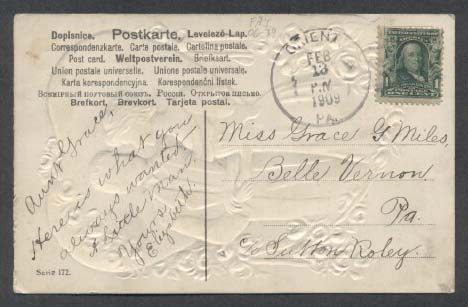 Dopisnice. Postkarte. Levelező-Lap.
Correspondenzkarte. Carte postale. Cartolina postale.
Post card. Weltpostverein. Briefkaart.
Union postale universelle. Unione postale universale.
Karta korespondencyjna. Korespondenční listek.
Всемірный почтовый союзъ. Россія. Открытое письмо.
Brefkort. Brevkort. Tarjeta postal.
ORIENT
FEB
13
P.M
1909
PA.
Aunt Grace,
Here is what you
always wanted,
a little man
Yours
Elizabeth.
Miss Grace G Miles,
Belle Vernon
Pa.
c/o Sutton Roley.
Serie 172.